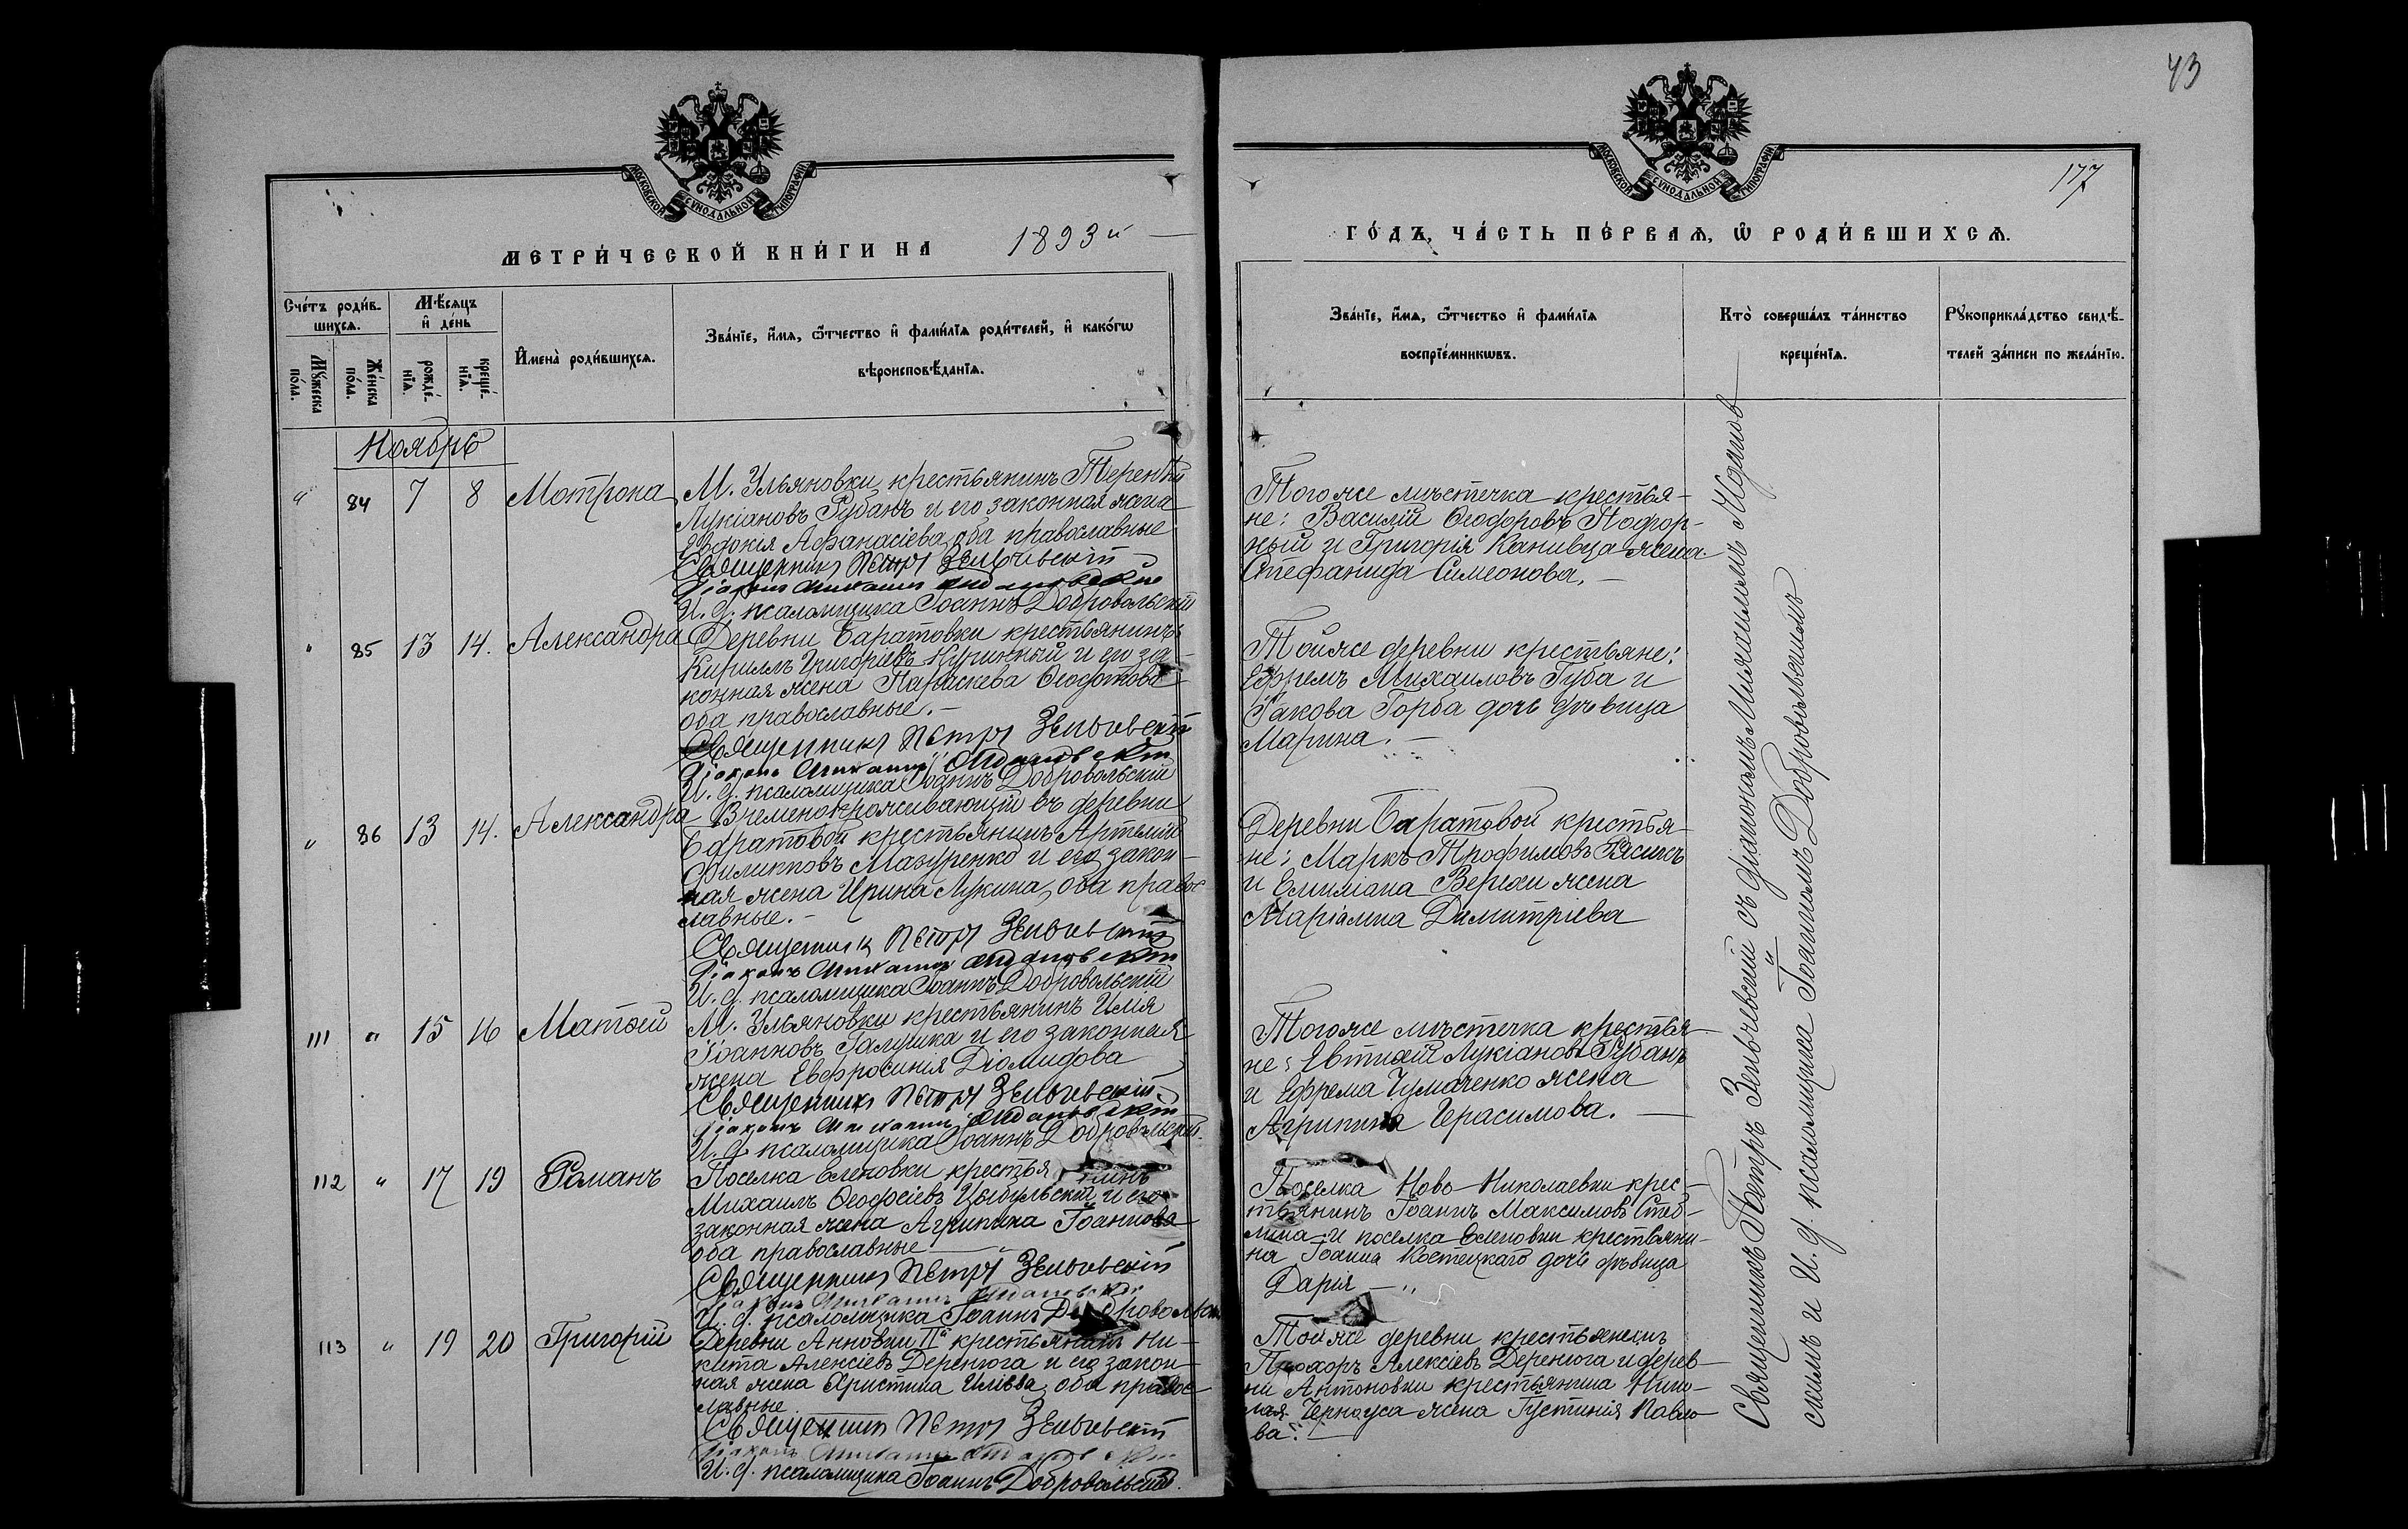 43
177
МОСКОВСКОЙ СѴНОДАЛЬНОЙ ТИПОГРАФІИ
МОСКОВСКОЙ СѴНОДАЛЬНОЙ ТИПОГРАФІИ
МЕТРИ́ЧЕСКОЙ КНИ́ГИ НА 1893й
ГО́ДЪ, ЧА́СТЬ ПЕ́РВАѦ, Ѡ҆ РОДИ́ВШИХСѦ.
Сче́тъ роди́в-
шихсѧ.
Мѣ́сѧцъ
и҆ де́нь
Мꙋ́жеска
по́ла.
Же́нска
по́ла.
рожде́-
нїѧ.
креще́-
нїѧ.
И҆мена̀ роди́вшихсѧ.
Зва́нїе, и҆́мѧ, ѻ҆́тчество и҆ фами́лїѧ роди́телей, и҆ како́гѡ
вѣроисповѣ́данїѧ.
Зва́нїе, и҆́мѧ, ѻ҆́тчество и҆ фами́лїѧ
воспрїе́мникѡвъ.
Кто̀ соверша́лъ та́инство
креще́нїѧ.
Рꙋкоприкла́дство свидѣ́-
телей за́писи по жела́нїю.
Ноябрь
" 84 7 8 Мотрона
М. Ульяновки крестьянинъ Терентій
Лукіановъ Рубанъ и его законная жена
Евдокія Афанасіева, оба православные
Священникъ Петръ Зеньчевскій
Діаконъ Михаилъ
И. д. псаломщика Іоаннъ Добровольскій
Тогоже мѣстечка крестья-
не: Василій Ѳеодоровъ Подгор-
ный и Григорія Канивца жена
Стефанида Симеонова.
" 85 13 14. Александра
Деревни Баратовки крестьянинъ
Кириллъ Григоріевъ Куринный и его за-
конная жена Параскева Ѳеофанова
оба православные.
Священникъ Петръ Зеньчевскій
Діаконъ Михаилъ
И. д. псаломщика Іоаннъ Добровольскій
Тойже деревни крестьяне:
Ефремъ Михаиловъ Губа и
Іакова Горба дочь дѣвица
Марина.
" 86 13 14. Александра
Временнопроживающій въ деревни
Баратовой крестьянинъ Артемій
Филипповъ Мазуренко и его закон-
ная жена Ирина Лукина, оба правос-
лавные.
Священникъ Петръ Зеньчевскій
Діаконъ Михаилъ
И. д. псаломщика Іоаннъ Добровольскій
Деревни Баратовой крестья-
не: Маркъ Трофимовъ
и Емиліана Верехи жена
Маріамна Димитріева
111 " 15 16 Матѳей
М. Ульяновки крестьянинъ Илія
Іоанновъ Галушка и его законная
жена Евфросинія Діомидова
Священникъ Петръ Зеньчевскій
Діаконъ Михаилъ
И. д. псаломщика Іоаннъ Добровольскій
Тогоже мѣстечка крестья-
не: Евтихій Лукіановъ Рубанъ
и Ефрема Чумаченко жена
Агрипина Герасимова.
112 " 17 19 Романъ
Поселка Еленовки крестьянинъ
Михаилъ Ѳеодосіевъ Цыбульскій и его
законная жена Агрипина Іоаннова
оба православные
Священникъ Петръ Зеньчевскій
Діаконъ Михаилъ
И. д. псаломщика Іоаннъ Добровольскій
Поселка Ново-Николаевки крес-
тьянинъ Іоаннъ Максимовъ
и поселка Еленовки крестьяни-
на Іоанна Костецкаго дочь дѣвица
Дарія
113 " 19 20 Григорій
Деревни Анновки IIй крестьянинъ Ни-
кита Алексіевъ Деренюга и его закон-
ная жена Христина Иліева, оба правос-
лавные
Священникъ Петръ Зеньчевскій
Діаконъ Михаилъ
И. д. псаломщика Іоаннъ Добровольскій.
Тойже деревни крестьянинъ
Прохоръ Алексіевъ Деренюга и дерев-
ни Антоновки крестьянина Нико-
лая Черноуса жена Іустинія Павло-
ва.
Священникъ Петръ Зеньчевскій съ діакономъ Михаиломъ
и И. д. псаломщика Іоанномъ Добровольскимъ